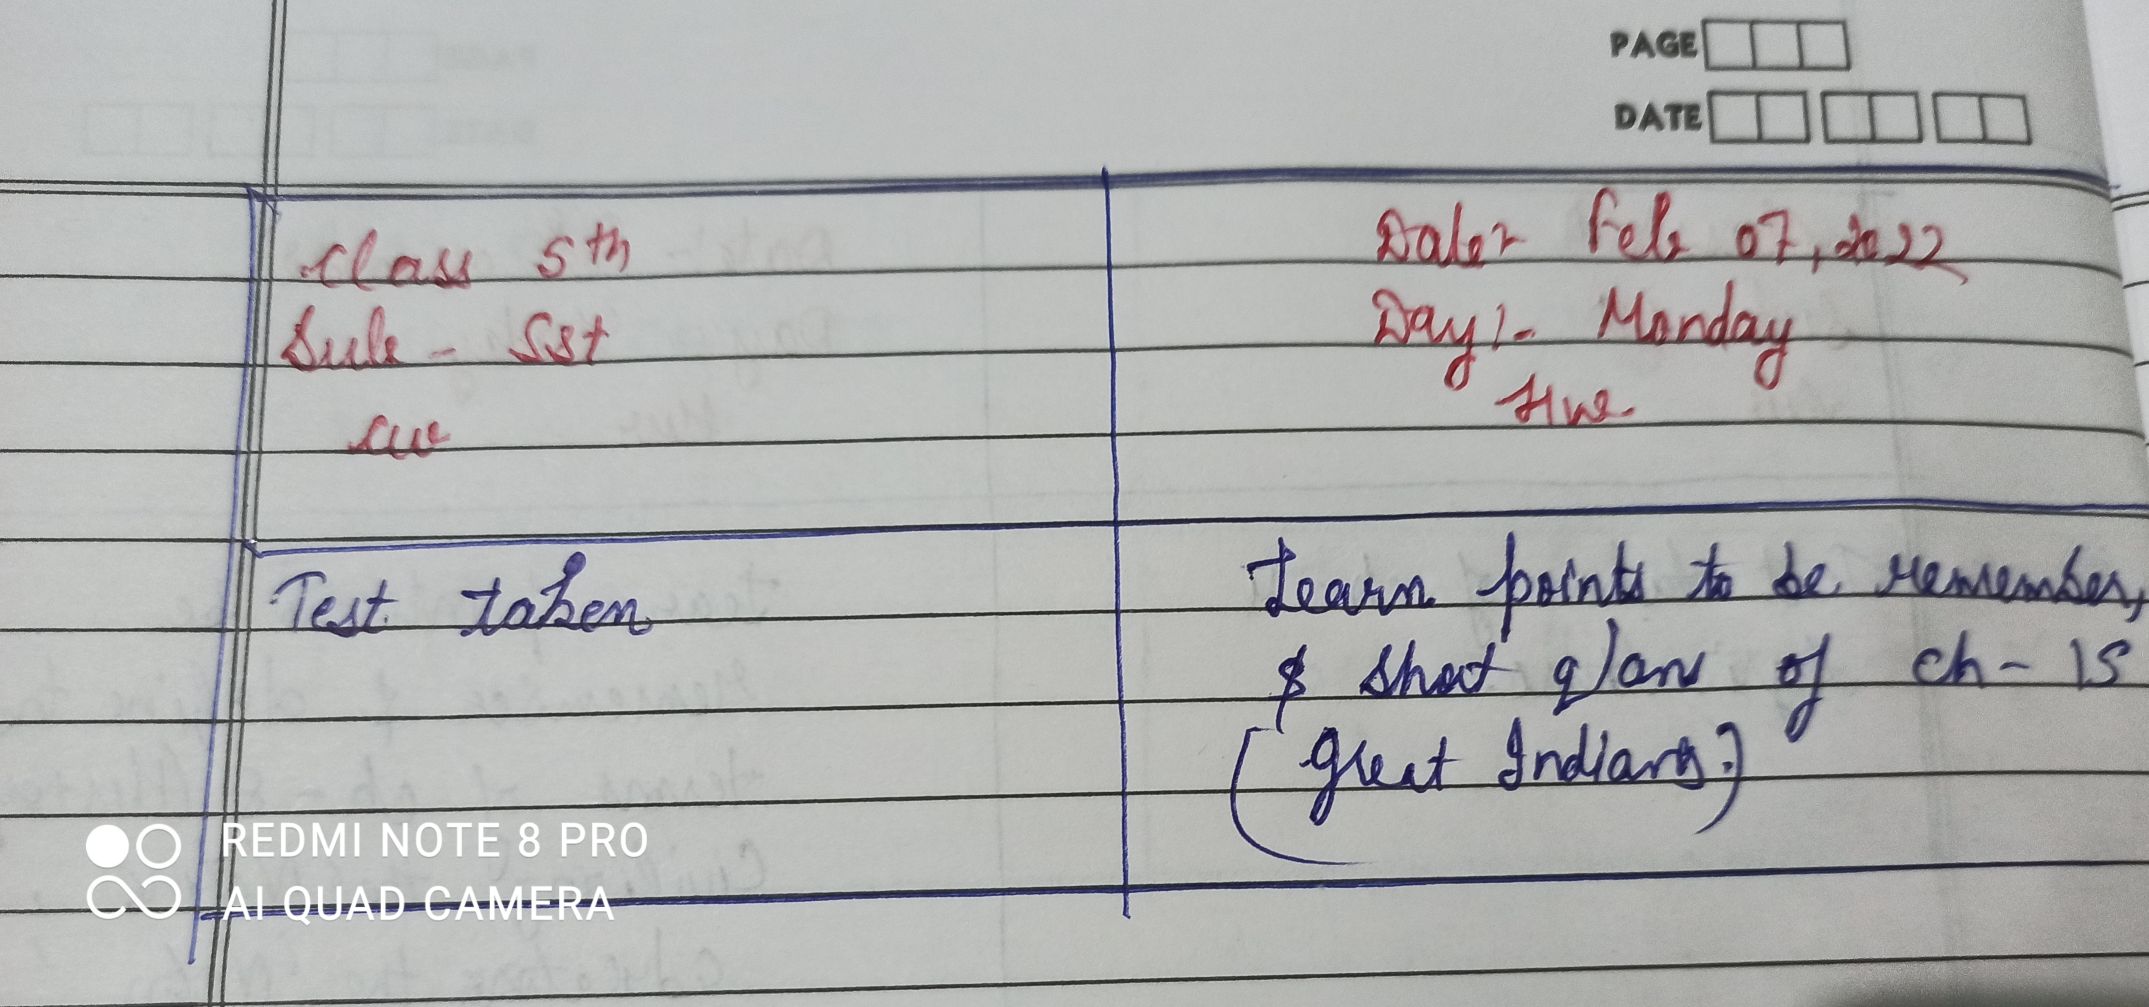 PAGE
DATE
Class 5th
Sub - Sst
CW
Date:- Feb 07, 2022
Day:- Monday
HW.
Test taken
Learn points to be remember,
& short q/ans of ch - 15
(Great Indians.)
REDMI NOTE 8 PRO
AI QUAD CAMERA